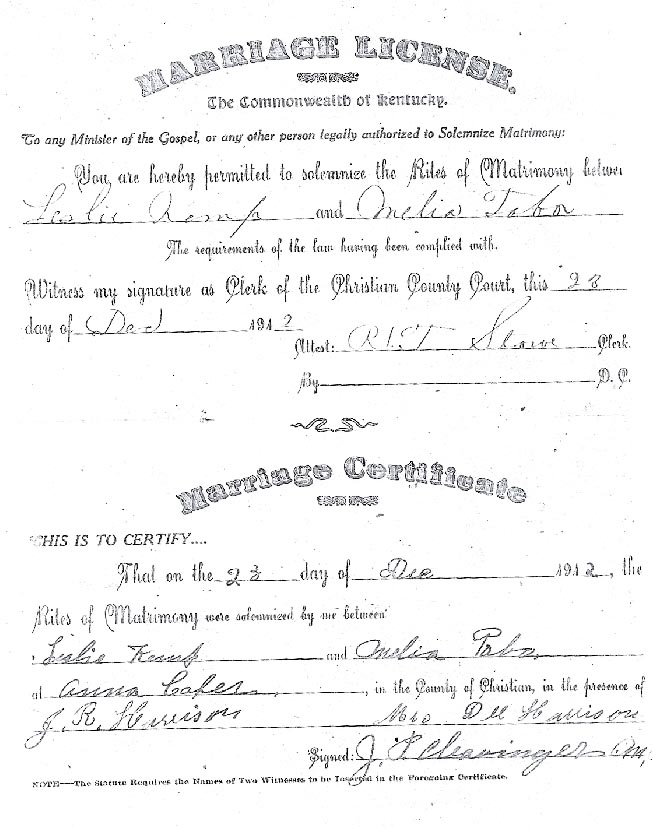 MARRIAGE LICENSE.
The Commonwealth of Kentucky.
To any Minister of the Gospel, or any other person legally authorized to Solemnize Matrimony:
You are hereby permitted to solemnize the Rites of Matrimony betwe
Leslie Kemp and Melia Tabor
The requirements of the law having been complied with.
Witness my signature as Clerk of the Christian County Court, this 23
day of 1912
Attest: Clerk.
By D. C.
Marriage Certificate
THIS IS TO CERTIFY....
That on the 23 day of Dec 1912, the
Rites of Matrimony were solemnized by me between
Leslie Kemp and Melia Tabor
at Anna, in the County of Christian, in the presence of
J. R. Harrison Mrs Dee Harrison
Signed: J. P.
NOTE—The Statute Requires the Names of Two Witnesses to be Inserted in the Foregoing Certificate.